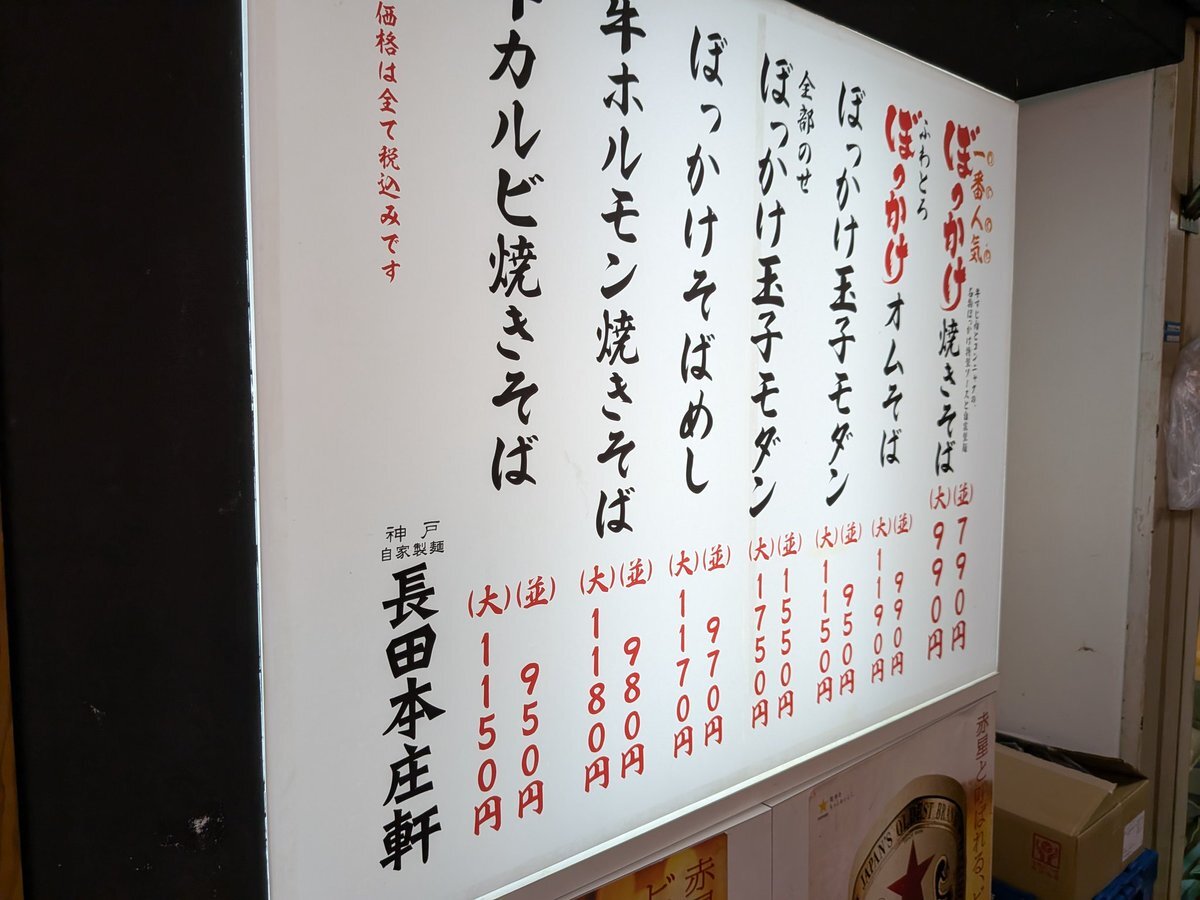 一番人気
ぼっかけ焼きそば
牛すじ肉とコンニャクの、
(並)790円
(大)990円
ふわとろ
ぼっかけオムそば
(並)990円
(大)1190円
ぼっかけ玉子モダン
(並)950円
(大)1150円
全部のせ
ぼっかけ玉子モダン
(並)1550円
(大)1750円
ぼっかけそばめし
(並)970円
(大)1170円
牛ホルモン焼きそば
(並)980円
(大)1180円
カルビ焼きそば
(並)950円
(大)1150円
価格は全て税込みです
神戸
自家製麺
長田本庄軒
赤星と呼ばれる、ビ
JAPAN'S OLDEST BRAN
赤
ビ